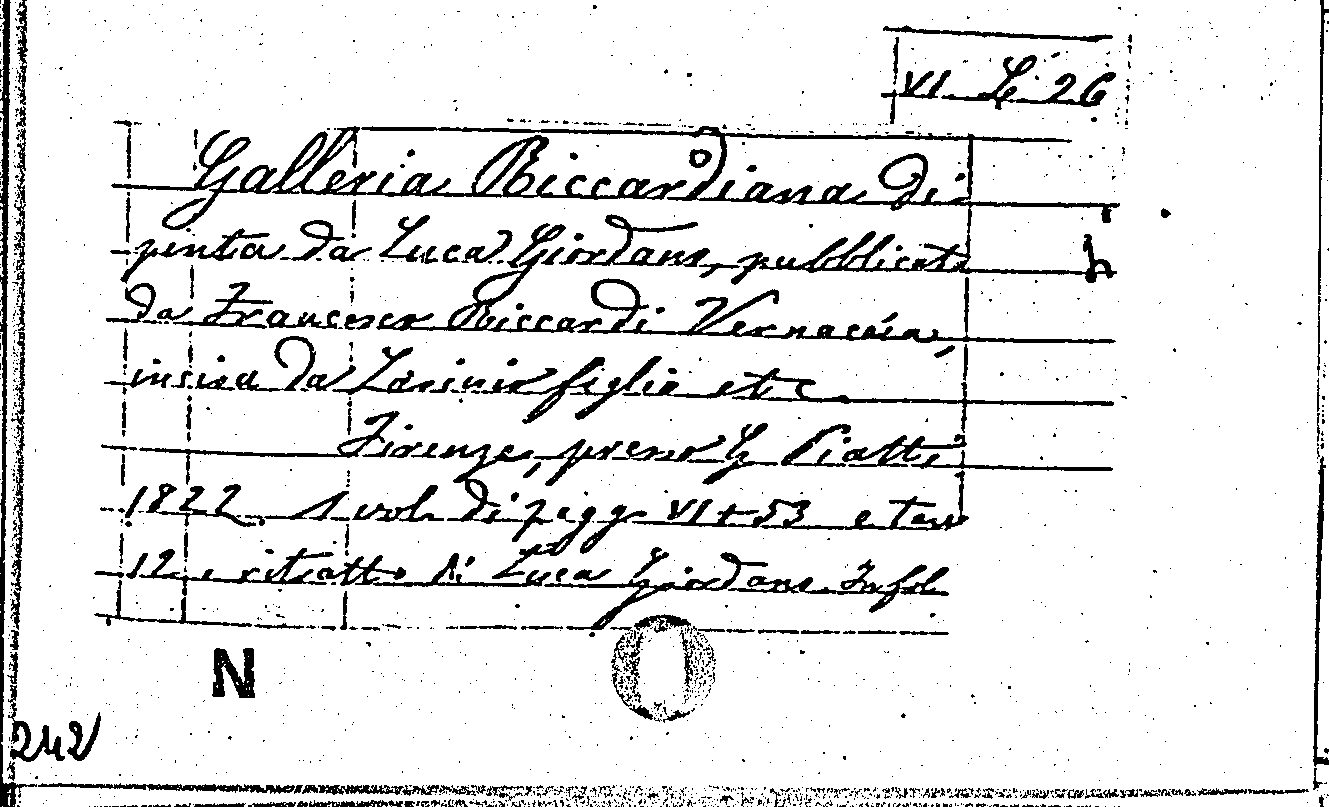 VI. L. 26
Galleria Riccardiana di-
pinta da Luca Giordano, pubblicata
da Francesco Riccardi Vernaccia,
incisa da Lasinio figlio etc.
Firenze, presso G. Piatti
1822. 1 vol. di pagg. VI + 53 e tav.
12, e ritratto di Luca Giordano. In fol.
N
242